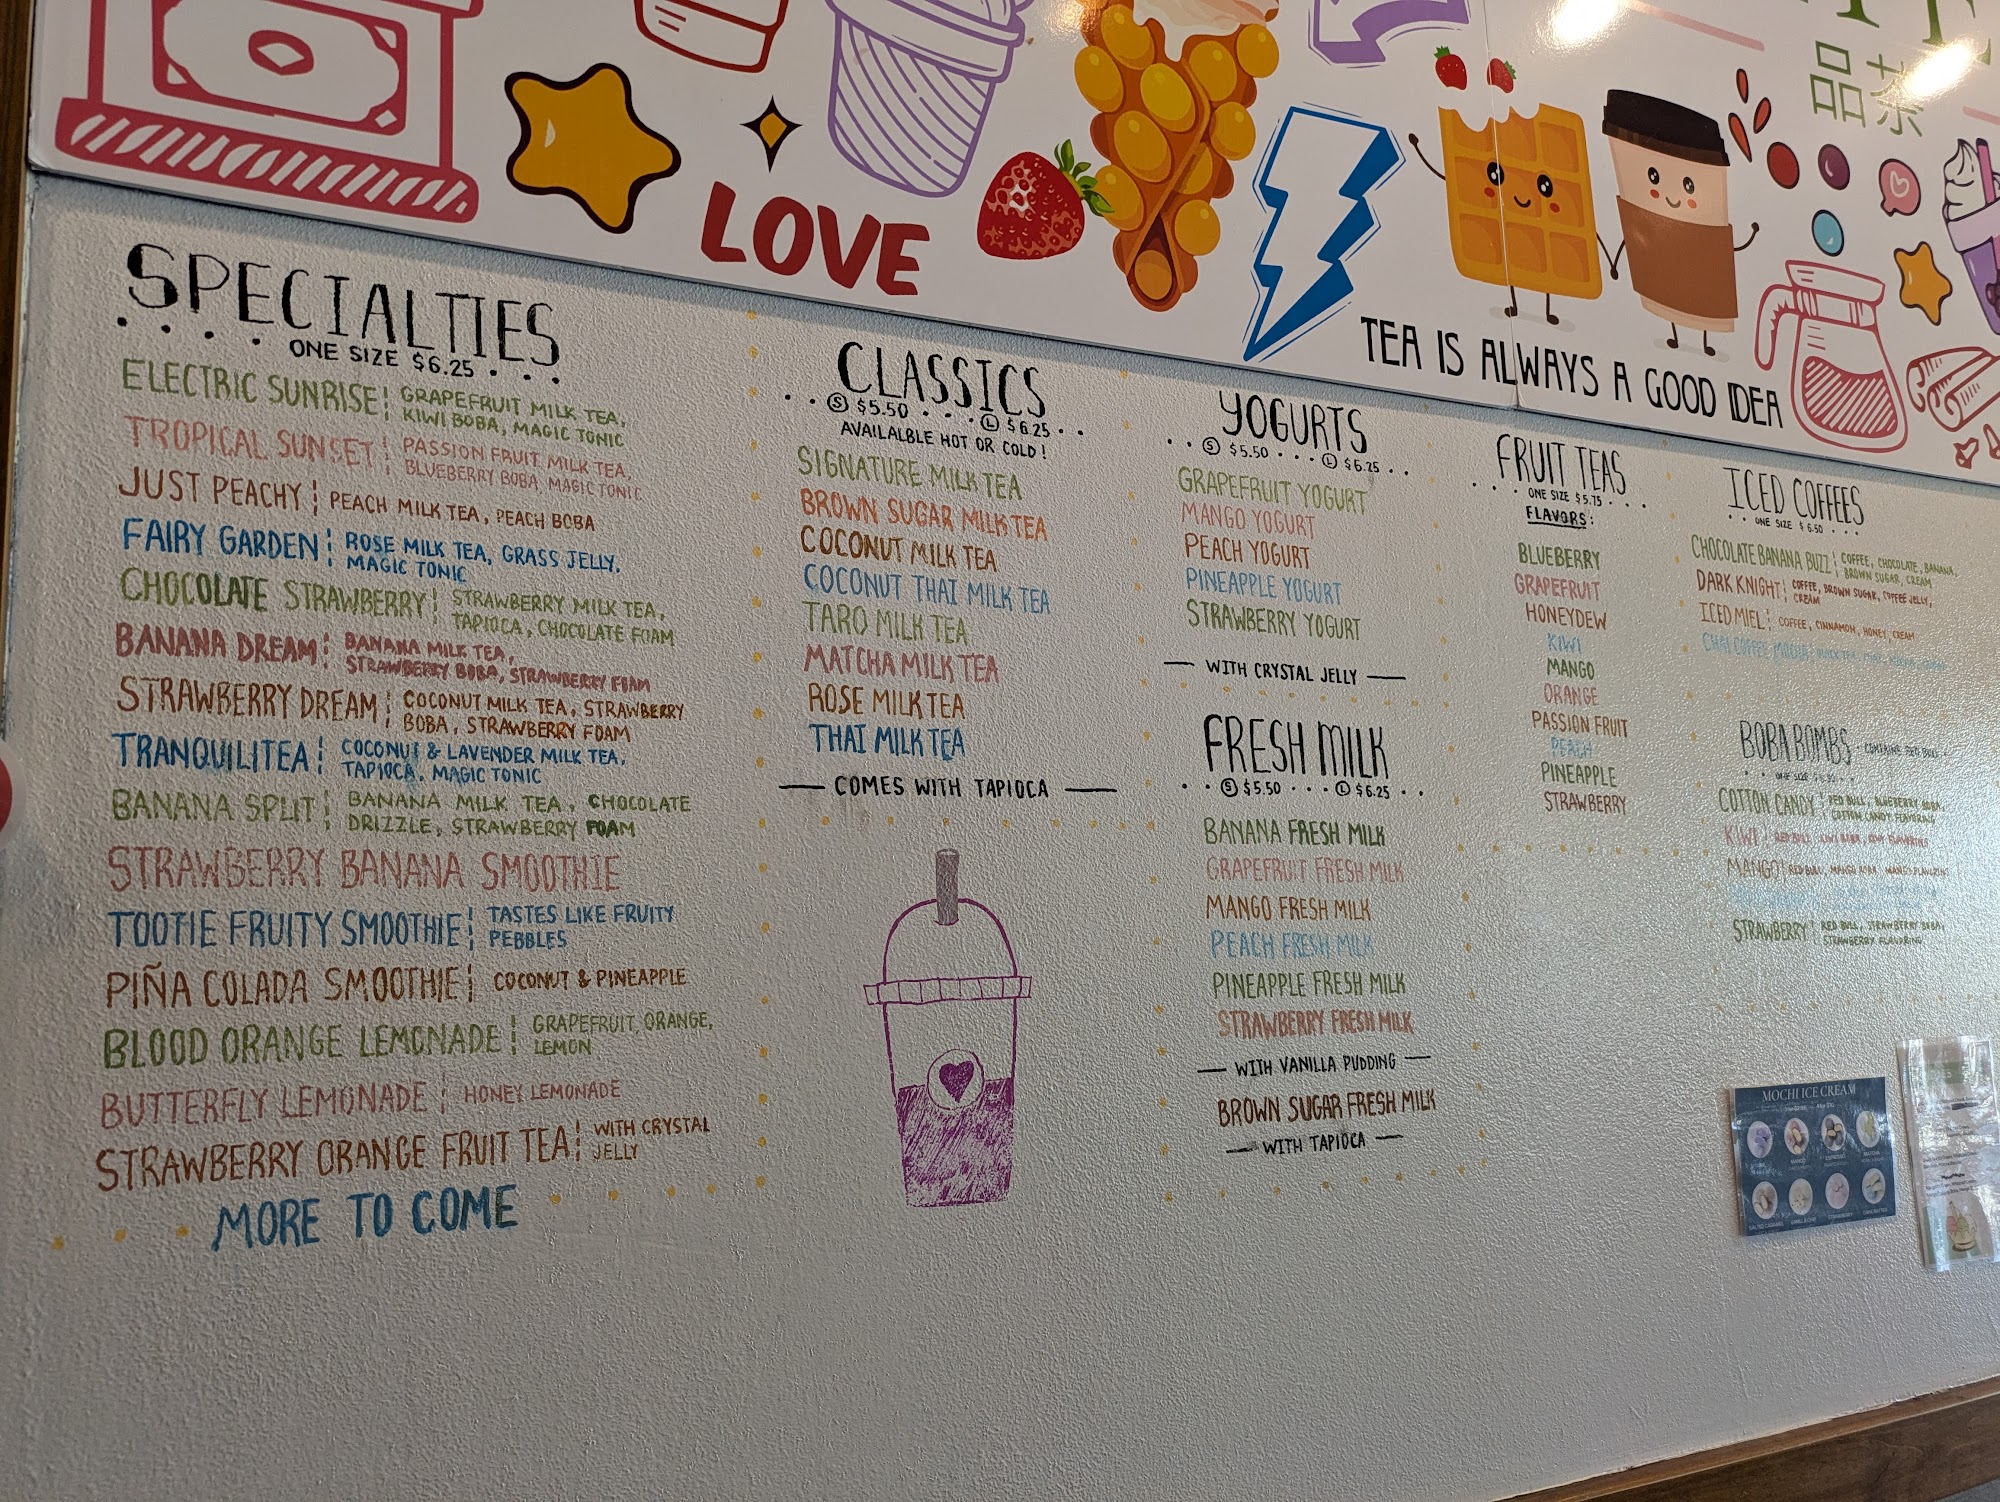 品茶
LOVE
TEA IS ALWAYS A GOOD IDEA
SPECIALTIES
ONE SIZE $6.25
ELECTRIC SUNRISE GRAPEFRUIT MILK TEA,
KIWI BOBA, MAGIC TONIC
TROPICAL SUNSET PASSION FRUIT MILK TEA,
BLUEBERRY BOBA, MAGIC TONIC
JUST PEACHY PEACH MILK TEA, PEACH BOBA
FAIRY GARDEN ROSE MILK TEA, GRASS JELLY,
MAGIC TONIC
CHOCOLATE STRAWBERRY STRAWBERRY MILK TEA,
TAPIOCA, CHOCOLATE FOAM
BANANA DREAM BANANA MILK TEA,
STRAWBERRY BOBA, STRAWBERRY FOAM
STRAWBERRY DREAM COCONUT MILK TEA, STRAWBERRY
BOBA, STRAWBERRY FOAM
TRANQUILITEA COCONUT & LAVENDER MILK TEA,
TAPIOCA, MAGIC TONIC
BANANA SPLIT BANANA MILK TEA, CHOCOLATE
DRIZZLE, STRAWBERRY FOAM
STRAWBERRY BANANA SMOOTHIE
TOOTIE FRUITY SMOOTHIE TASTES LIKE FRUITY
PEBBLES
PIÑA COLADA SMOOTHIE COCONUT & PINEAPPLE
BLOOD ORANGE LEMONADE GRAPEFRUIT, ORANGE,
LEMON
BUTTERFLY LEMONADE HONEY LEMONADE
STRAWBERRY ORANGE FRUIT TEA WITH CRYSTAL
JELLY
MORE TO COME
CLASSICS
S $5.50 L $6.25
AVAILALBLE HOT OR COLD!
SIGNATURE MILK TEA
BROWN SUGAR MILK TEA
COCONUT MILK TEA
COCONUT THAI MILK TEA
TARO MILK TEA
MATCHA MILK TEA
ROSE MILK TEA
THAI MILK TEA
COMES WITH TAPIOCA
YOGURTS
S $5.50 L $6.25
GRAPEFRUIT YOGURT
MANGO YOGURT
PEACH YOGURT
PINEAPPLE YOGURT
STRAWBERRY YOGURT
WITH CRYSTAL JELLY
FRESH MILK
S $5.50 L $6.25
BANANA FRESH MILK
GRAPEFRUIT FRESH MILK
MANGO FRESH MILK
PEACH FRESH MILK
PINEAPPLE FRESH MILK
STRAWBERRY FRESH MILK
WITH VANILLA PUDDING
BROWN SUGAR FRESH MILK
WITH TAPIOCA
FRUIT TEAS
ONE SIZE $5.75
FLAVORS:
BLUEBERRY
GRAPEFRUIT
HONEYDEW
KIWI
MANGO
ORANGE
PASSION FRUIT
PEACH
PINEAPPLE
STRAWBERRY
ICED COFFEES
ONE SIZE $6.50
CHOCOLATE BANANA BUZZ COFFEE, CHOCOLATE, BANANA,
BROWN SUGAR, CREAM
DARK KNIGHT COFFEE, BROWN SUGAR, COFFEE JELLY,
CREAM
ICED MIEL COFFEE, CINNAMON, HONEY, CREAM
CHAI COFFEE
BOBA BOMBS CONTAINS RED BULL
ONE SIZE
COTTON CANDY RED BULL, BLUEBERRY BOBA,
COTTON CANDY FLAVORING
KIWI RED BULL, KIWI BOBA, KIWI FLAVORING
MANGO RED BULL, MANGO BOBA, MANGO FLAVORING
STRAWBERRY RED BULL, STRAWBERRY BOBA,
STRAWBERRY FLAVORING
MOCHI ICE CREAM
MANGO
ESPRESSO
MATCHA
SALTED CARAMEL
STRAWBERRY